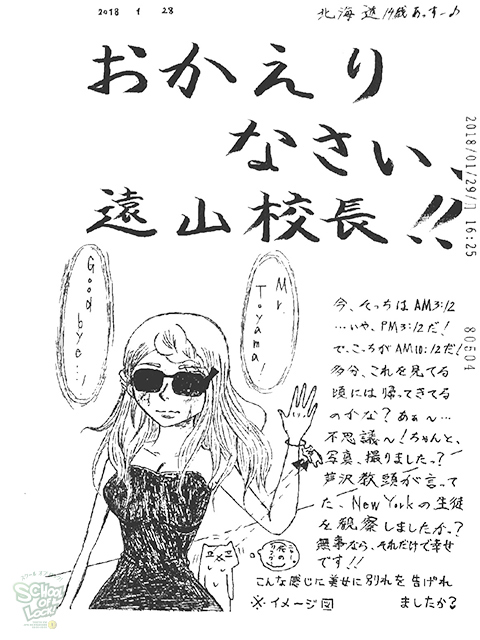 2018 1 28
北海道 19歳 あっすー♪
おかえり
なさい、
遠山校長!!
2018/01/29/月 16:25
80504
Good bye…!
Mr. Toyama!
今、そっちはAM3:12
…いや、PM3:12だ!
で、こっちがAM10:12だ!
多分、これを見てる
頃には帰ってきてる
のかな?あぁ〜…
不思議〜!ちゃんと、
写真、撮りましたっ?
芦沢教頭が言って
た、New Yorkの生徒
を観察しましたか?
無事なら、それだけで幸せ
です!!
こんな感じに美女に別れを告げれ
ましたか?
※イメージ図
SCHOOL OF LOCK!